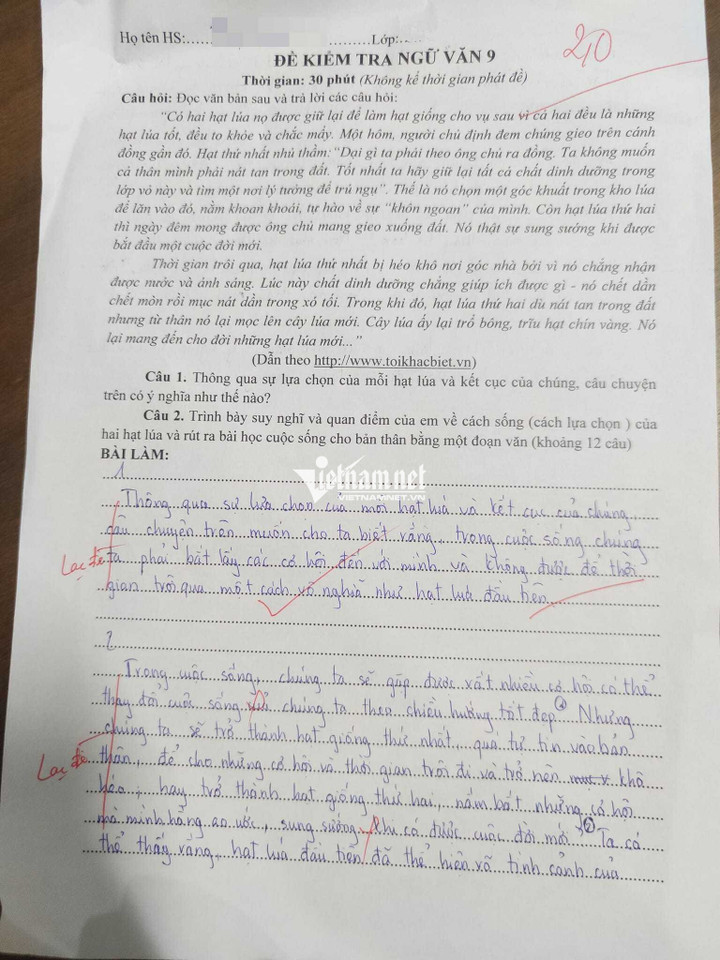 Họ tên HS:.... .........Lớp:....
2,0
ĐỀ KIỂM TRA NGỮ VĂN 9
Thời gian: 30 phút (Không kể thời gian phát đề)
Câu hỏi: Đọc văn bản sau và trả lời các câu hỏi:
"Có hai hạt lúa nọ được giữ lại để làm hạt giống cho vụ sau vì cả hai đều là những
hạt lúa tốt, đều to khỏe và chắc mẩy. Một hôm, người chủ định đem chúng gieo trên cánh
đồng gần đó. Hạt thứ nhất nhủ thầm: "Dại gì ta phải theo ông chủ ra đồng. Ta không muốn
cả thân mình phải nát tan trong đất. Tốt nhất ta hãy giữ lại tất cả chất dinh dưỡng trong
lớp vỏ này và tìm một nơi lý tưởng để trú ngụ". Thế là nó chọn một góc khuất trong kho lúa
để lăn vào đó, nằm khoan khoái, tự hào về sự "khôn ngoan" của mình. Còn hạt lúa thứ hai
thì ngày đêm mong được ông chủ mang gieo xuống đất. Nó thật sự sung sướng khi được
bắt đầu một cuộc đời mới.
Thời gian trôi qua, hạt lúa thứ nhất bị héo khô nơi góc nhà bởi vì nó chẳng nhận
được nước và ánh sáng. Lúc này chất dinh dưỡng chẳng giúp ích được gì - nó chết dần
chết mòn rồi mục nát dần trong xó tối. Trong khi đó, hạt lúa thứ hai dù nát tan trong đất
nhưng từ thân nó lại mọc lên cây lúa mới. Cây lúa ấy lại trổ bông, trĩu hạt chín vàng. Nó
lại mang đến cho đời những hạt lúa mới..."
(Dẫn theo http://www.toikhacbiet.vn)
Câu 1. Thông qua sự lựa chọn của mỗi hạt lúa và kết cục của chúng, câu chuyện
trên có ý nghĩa như thế nào?
Câu 2. Trình bày suy nghĩ và quan điểm của em về cách sống (cách lựa chọn ) của
hai hạt lúa và rút ra bài học cuộc sống cho bản thân bằng một đoạn văn (khoảng 12 câu)
BÀI LÀM:
vietnam.net
VIETNAMNET.VN
1
Thông qua sự lựa chọn của mỗi hạt lúa và kết cục của chúng,
câu chuyện trên muốn cho ta biết rằng, trong cuộc sống chúng
Lạc đề
ta phải bắt lấy các cơ hội đến với mình và không được để thời
gian trôi qua một cách vô nghĩa như hạt lúa đầu tiên.
2
Trong cuộc sống, chúng ta sẽ gặp được rất nhiều cơ hội có thể
thay đổi cuộc sống của chúng ta theo chiều hướng tốt đẹp. Nhưng
chúng ta sẽ trở thành hạt giống thứ nhất, quá tự tin vào bản
Lạc đề
thân, để cho những cơ hội và thời gian trôi đi và trở nên khô
héo, hay trở thành hạt giống thứ hai, nắm bắt những cơ hội
mà mình hằng ao ước, sung sướng khi có được cuộc đời mới. Ta có
thể thấy rằng, hạt lúa đầu tiên đã thể hiện rõ tình cảnh của